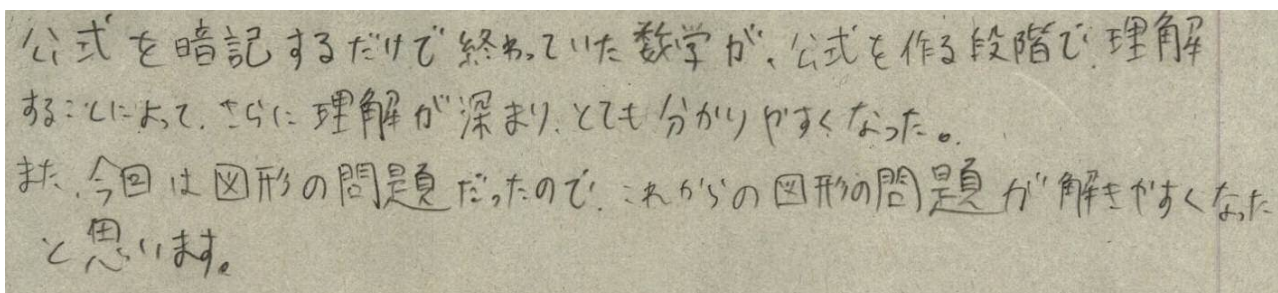 公式を暗記するだけで終わっていた数学が、公式を作る段階で、理解
することによって、さらに理解が深まり、とても分かりやすくなった。
また、今回は図形の問題だったので、これからの図形の問題が解きやすくなった
と思います。